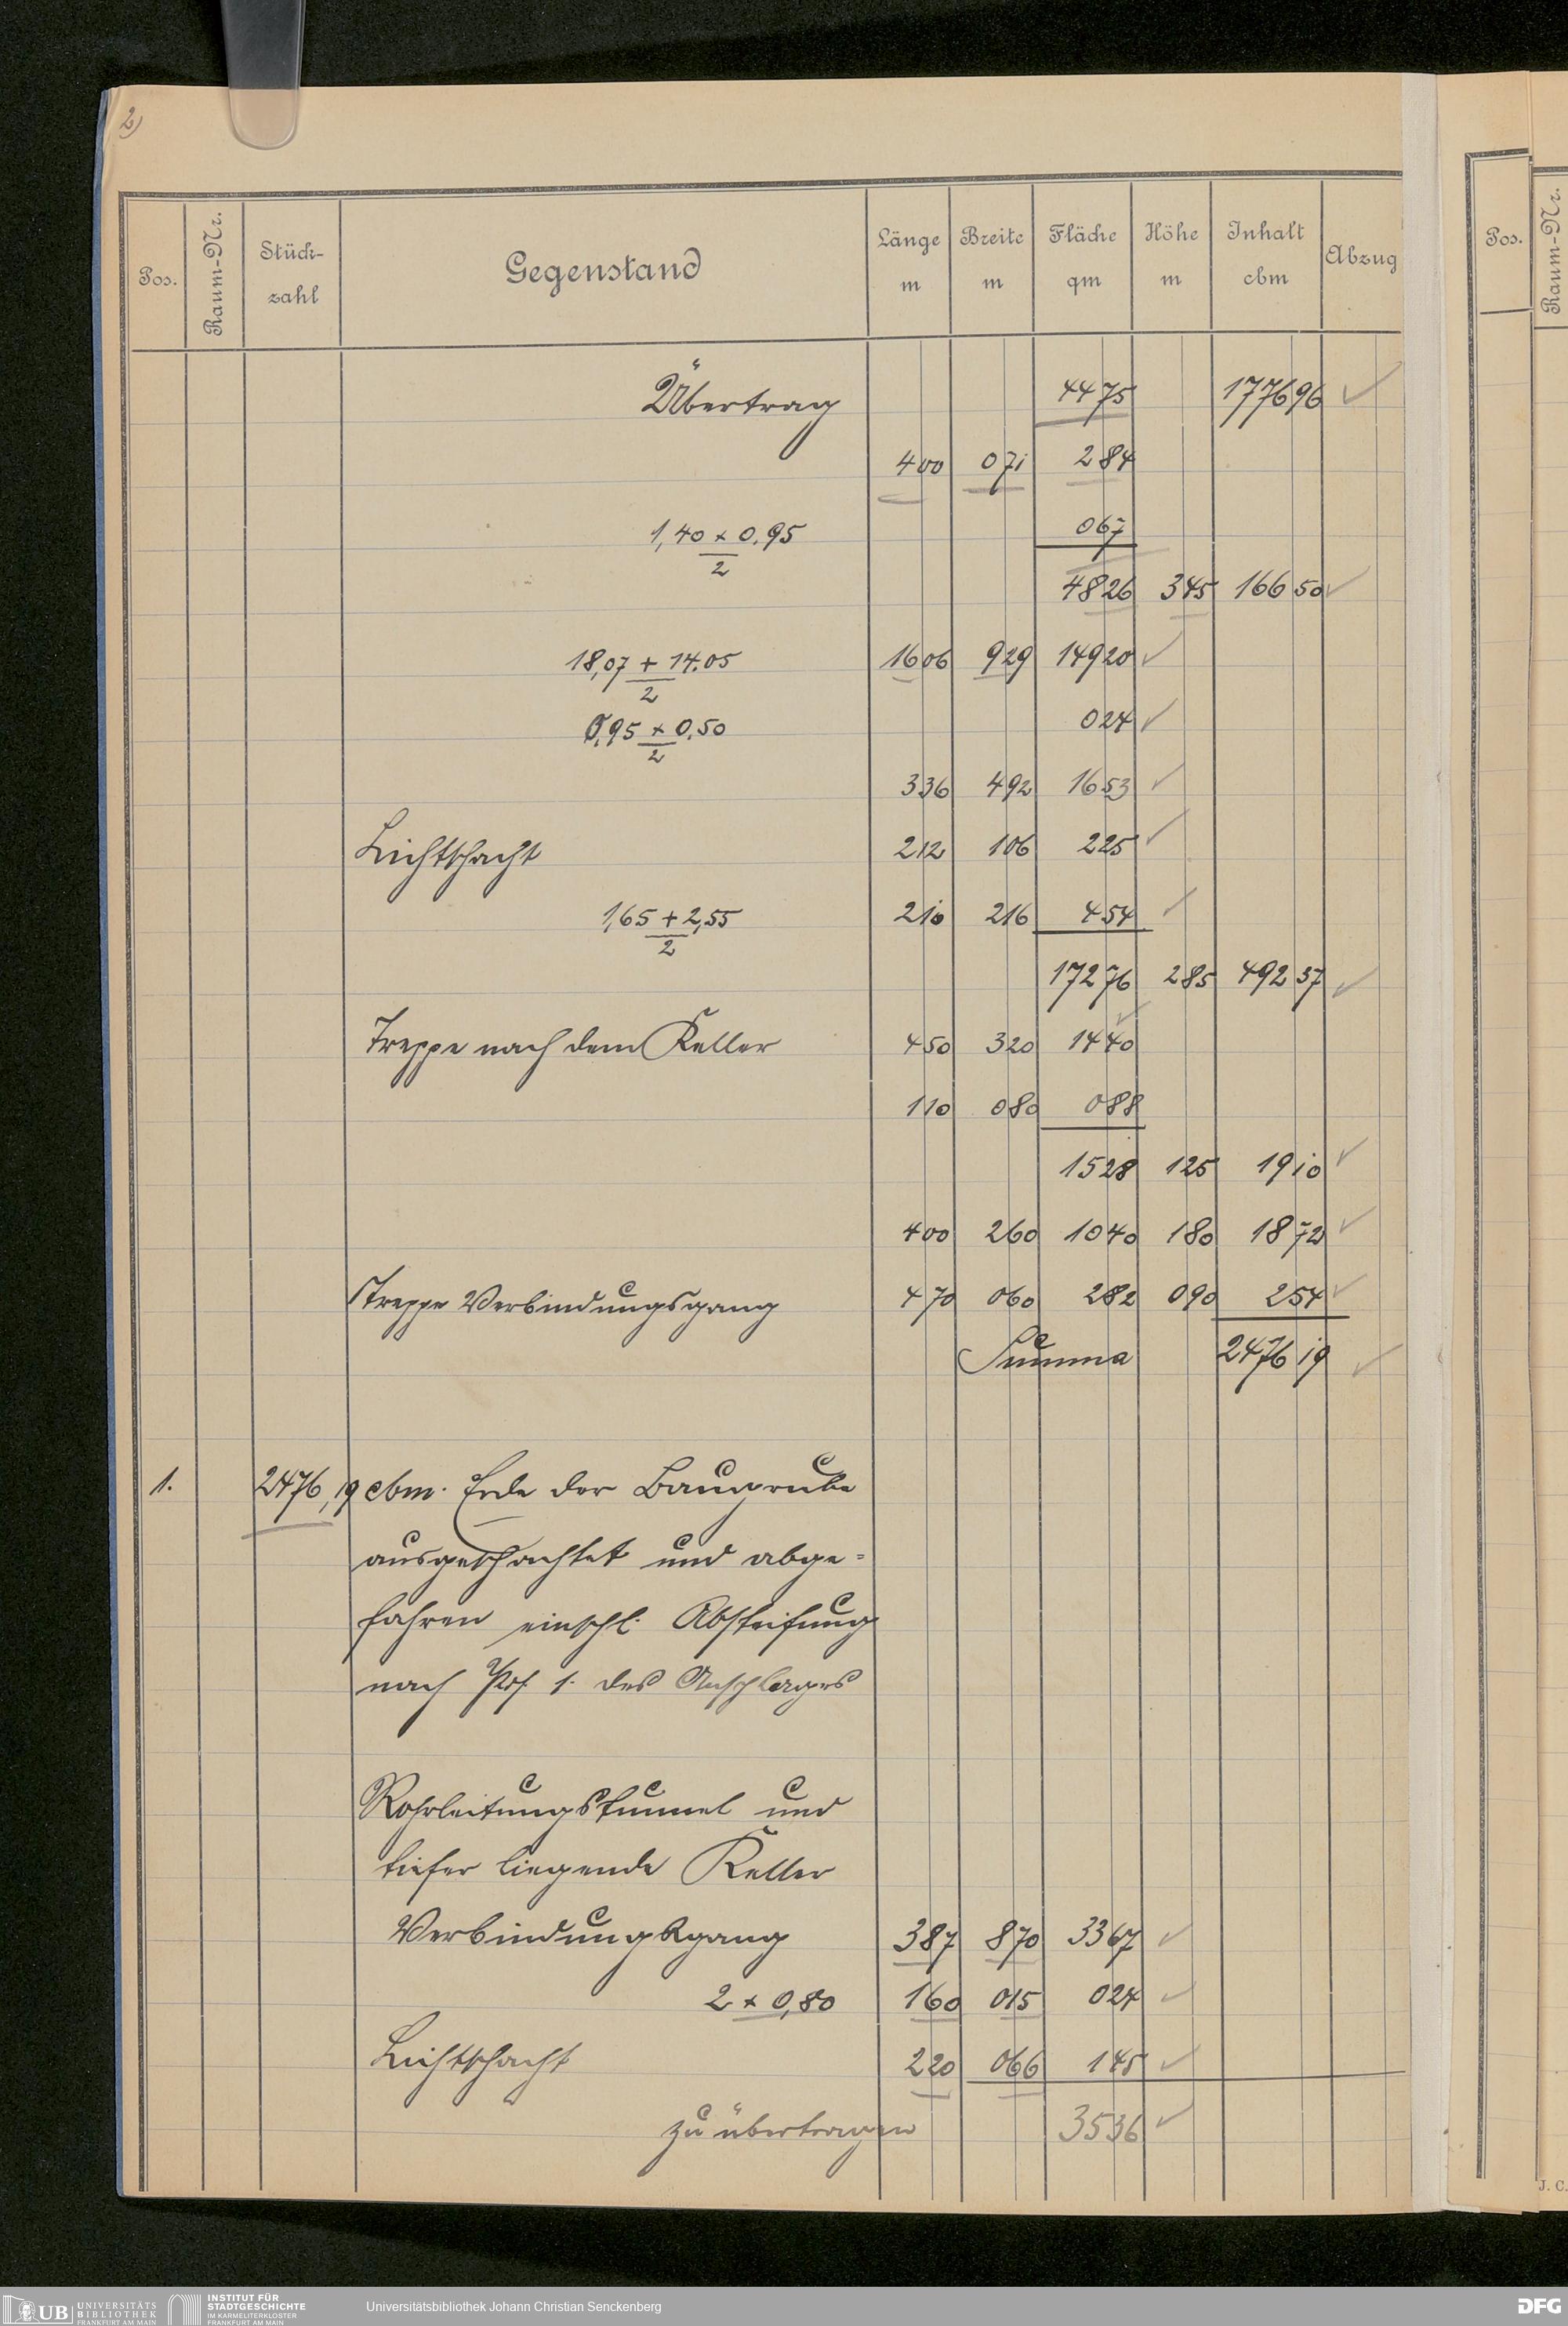 2)
Pos. Raum-Nr. Stück-zahl Gegenstand Länge m Breite m Fläche qm Höhe m Inhalt cbm Abzug
Pos. Raum-Nr.
Übertrag 44 75 1776 96 ✓
4 00 0 71 2 84
1,40 × 0,95 / 2 0 67
48 26 3 45 166 50 ✓
18,07 + 14.05 / 2 16 06 9 29 149 20 ✓
0,95 × 0,50 / 2 0 24 ✓
3 36 4 92 16 53 ✓
Lichtschacht 2 12 1 06 2 25 ✓
1,65 + 2,55 / 2 2 10 2 16 4 54 ✓
172 76 2 85 492 37 ✓
Treppe nach dem Keller 4 50 3 20 14 40 ✓
1 10 0 80 0 88
15 28 1 25 19 10 ✓
4 00 2 60 10 40 1 80 18 72 ✓
Treppe Verbindungsgang 4 70 0 60 2 82 0 90 2 54 ✓
Summa 2476 19 ✓
1. 2476,19 cbm. Erde der Baugrube
ausgeschachtet und abge=
fahren einschl. Absteifung
nach Pos. 1. des Anschlages
Rohrleitungstunnel und
tiefer liegende Keller
Verbindungsgang 3 87 8 70 33 67 ✓
2 × 0,80 1 60 0 15 0 24 ✓
Lichtschacht 2 20 0 66 1 45 ✓
zu übertragen 35 36 ✓
J. C.
UB UNIVERSITÄTS
BIBLIOTHEK
FRANKFURT AM MAIN
INSTITUT FÜR
STADTGESCHICHTE
IM KARMELITERKLOSTER
FRANKFURT AM MAIN
Universitätsbibliothek Johann Christian Senckenberg
DFG